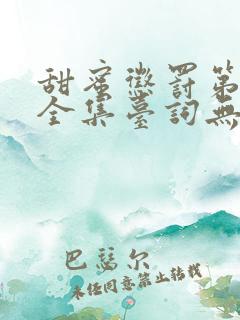 甜蜜懲罰第
全集臺詞無
巴瑟尔
未经同意禁止转载